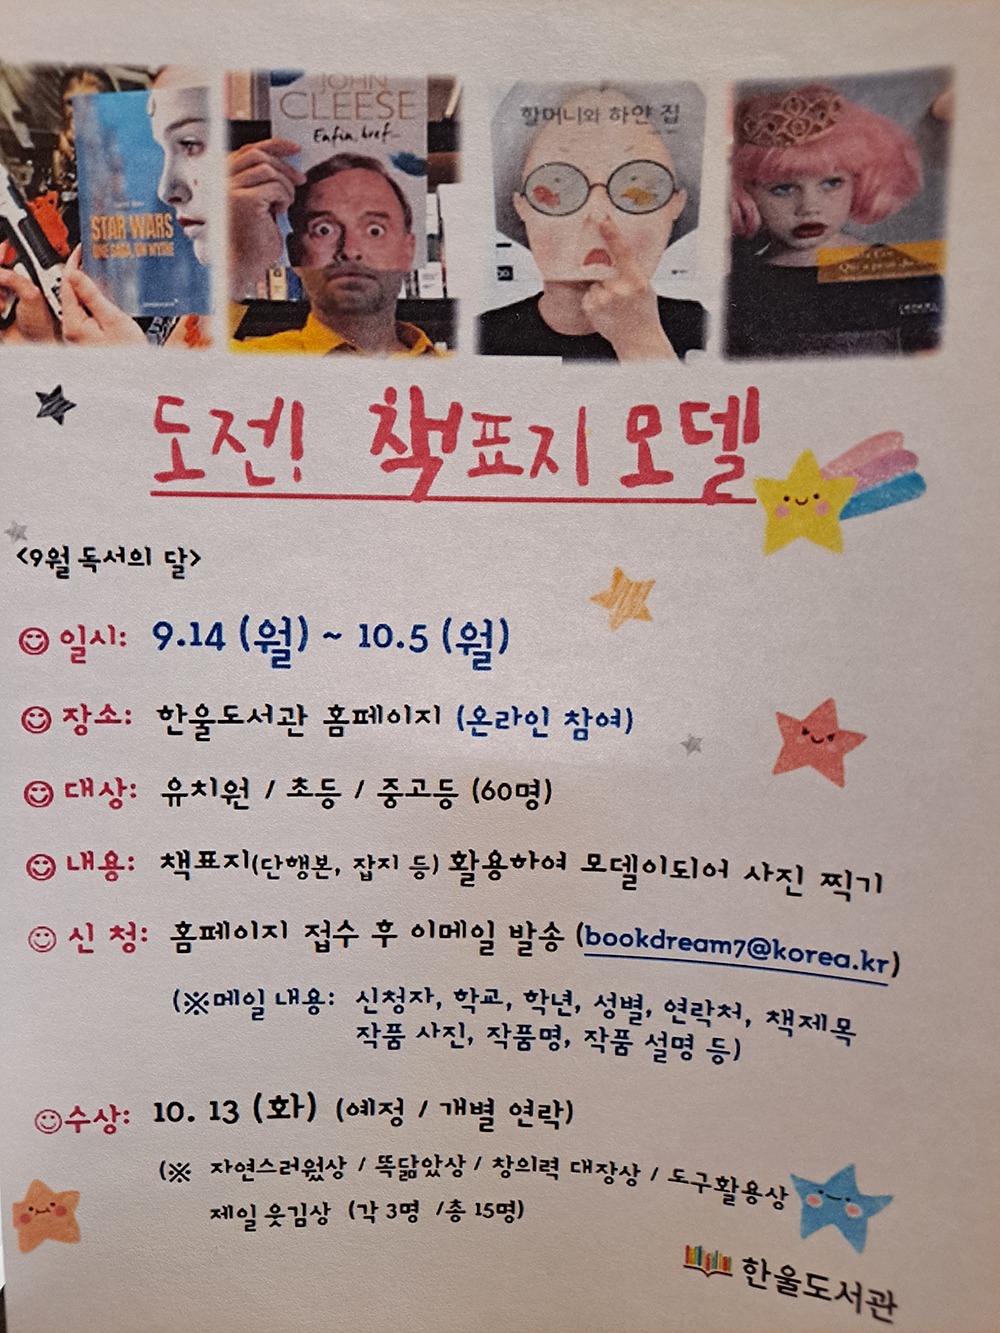 STAR WARS
UNE SAGA, UN MYTHE
JOHN
CLEESE
Enfin, bref...
할머니와 하얀 집
도전! 책표지 모델
<9월 독서의 달>
일시: 9.14 (월) ~ 10.5 (월)
장소: 한울도서관 홈페이지 (온라인 참여)
대상: 유치원 / 초등 / 중고등 (60명)
내용: 책표지(단행본, 잡지 등) 활용하여 모델이되어 사진 찍기
신청: 홈페이지 접수 후 이메일 발송 (bookdream7@korea.kr)
(※메일 내용: 신청자, 학교, 학년, 성별, 연락처, 책제목
작품 사진, 작품명, 작품 설명 등)
수상: 10. 13 (화) (예정 / 개별 연락)
(※ 자연스러웠상 / 똑닮았상 / 창의력 대장상 / 도구활용상
제일 웃김상 (각 3명 /총 15명)
한울도서관